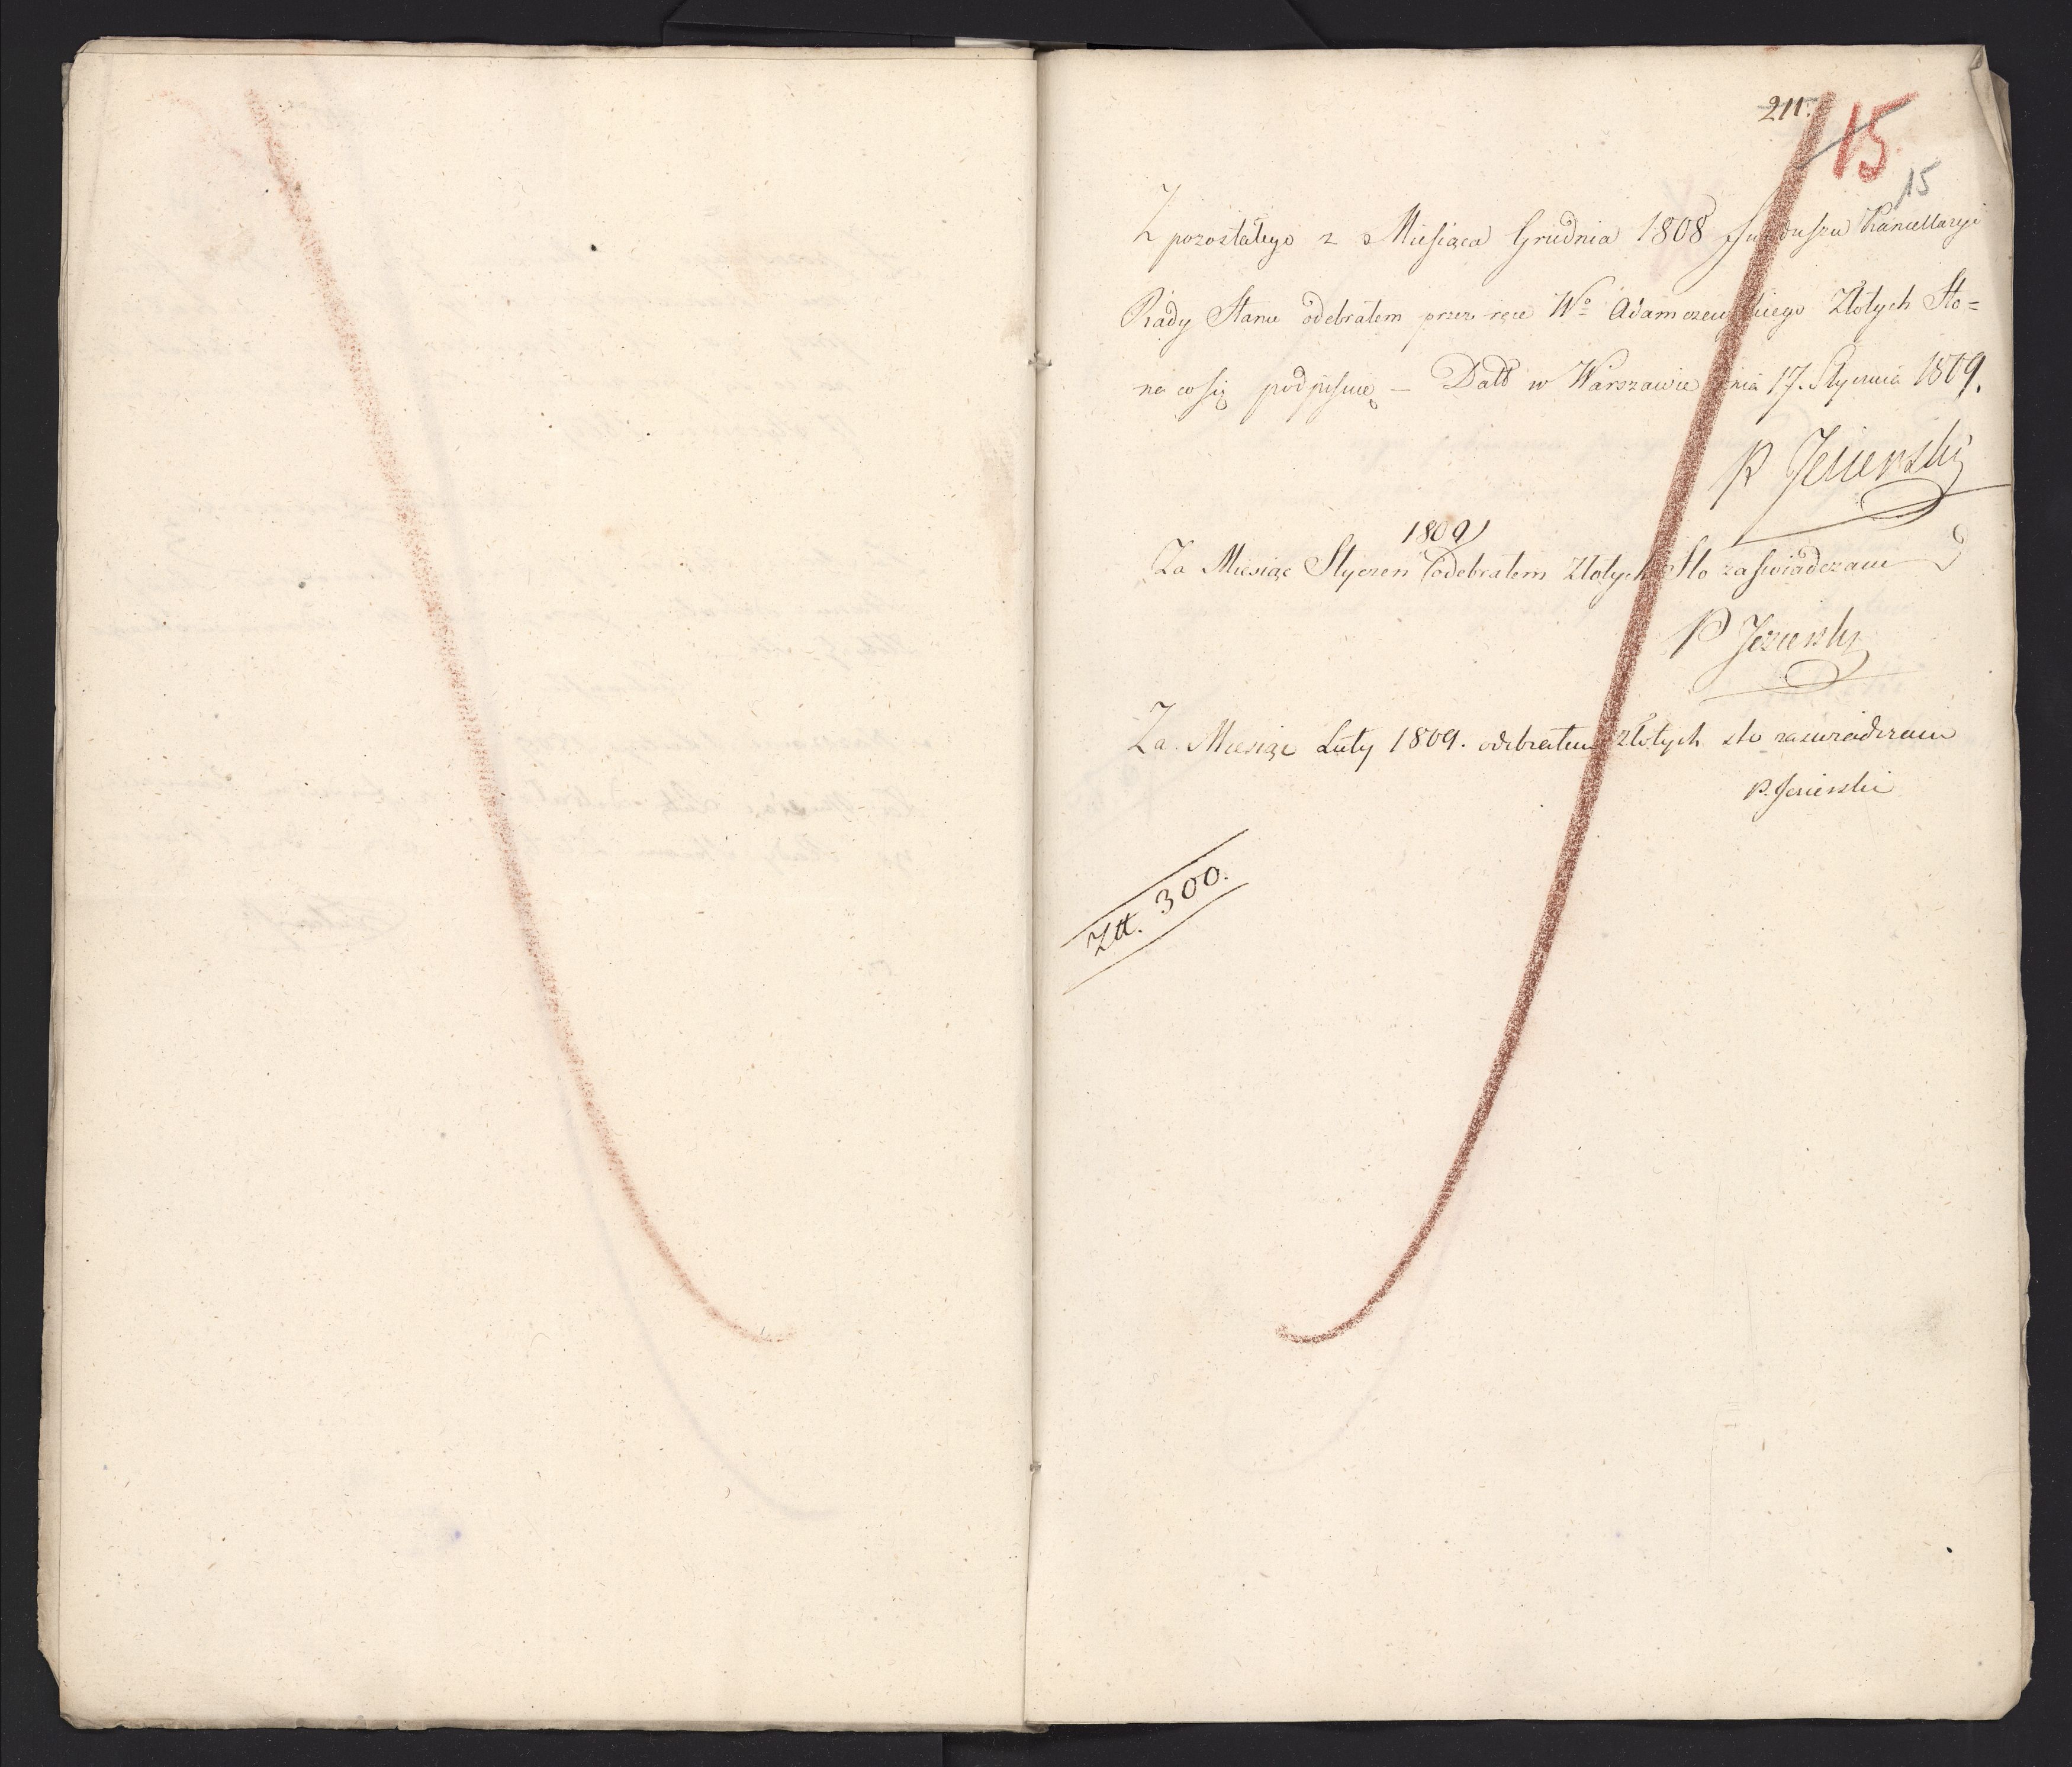 211.
15
15
Z pozostałego z Miesiąca Grudnia 1808 Funduszu Kancellaryi
Rady Stanu odebrałem przez ręce Wo Adamczewskiego Złotych Sto =
na co się podpisuię – Datt w Warszawie dnia 17. Stycznia 1809.
P Jezierski
1809
Za Miesiąc Styczen odebrałem Złotych Sto zaświadczam
P Jezierski
Za Miesiąc Luty 1809. odebrałem złotych sto zaswiadczam
P. Jezierski
Ztt. 300.